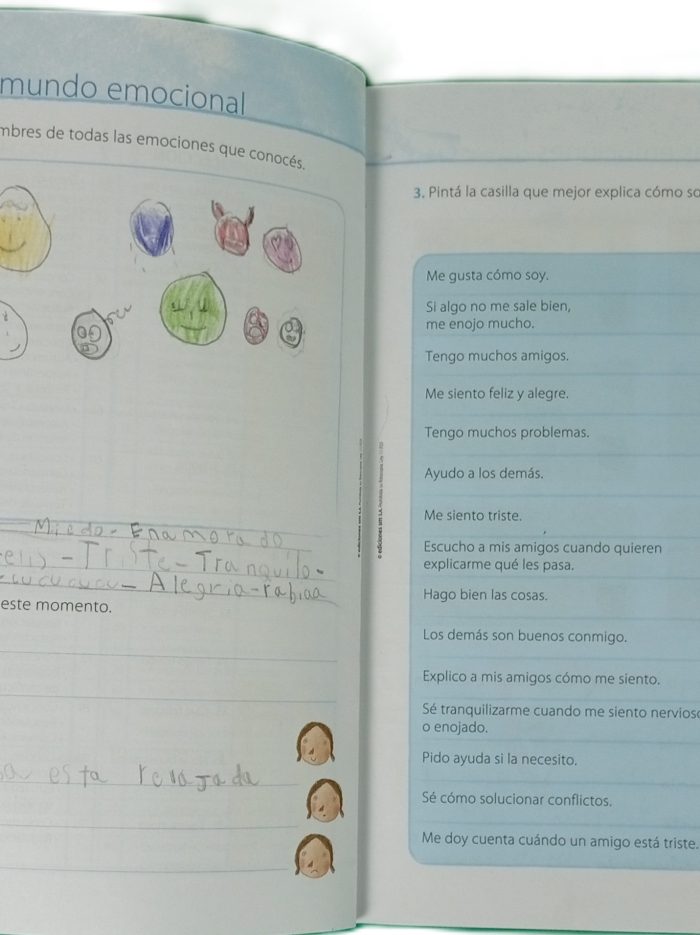 mundo emocional
mbres de todas las emociones que conocés.
Miedo - Enamorado
eliz - TriSte - Tranquilo -
cucucucu - Alegria - rabiaa
este momento.
esta relajada
3. Pintá la casilla que mejor explica cómo so
Me gusta cómo soy.
Si algo no me sale bien,
me enojo mucho.
Tengo muchos amigos.
Me siento feliz y alegre.
Tengo muchos problemas.
Ayudo a los demás.
Me siento triste.
Escucho a mis amigos cuando quieren
explicarme qué les pasa.
Hago bien las cosas.
Los demás son buenos conmigo.
Explico a mis amigos cómo me siento.
Sé tranquilizarme cuando me siento nervioso
o enojado.
Pido ayuda si la necesito.
Sé cómo solucionar conflictos.
Me doy cuenta cuándo un amigo está triste.